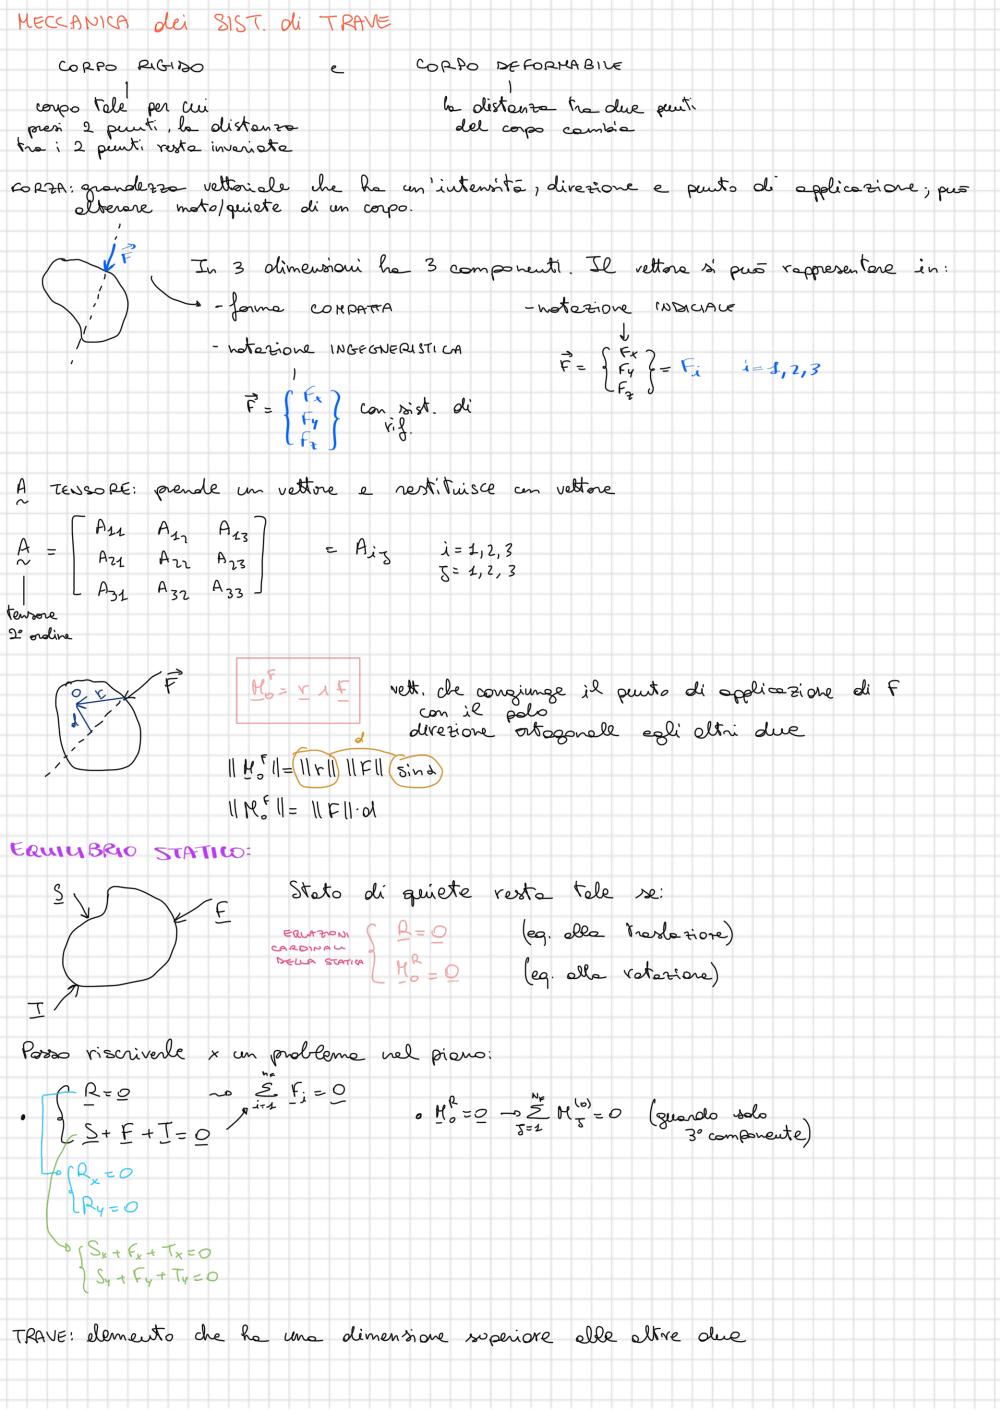 MECCANICA dei SIST. di TRAVE
CORPO RIGIDO e CORPO DEFORMABILE
corpo tale per cui
presi 2 punti, la distanza
tra i 2 punti resta invariata
la distanza tra due punti
del corpo cambia
FORZA: grandezza vettoriale che ha un'intensità, direzione e punto di applicazione; può
alterare moto/quiete di un corpo.
F⃗
In 3 dimensioni ha 3 componenti. Il vettore si può rappresentare in:
- forma COMPATTA
- notazione INGEGNERISTICA
F⃗ = { Fx Fy Fz } con sist. di
rif.
- notazione INDICIALE
F⃗ = { Fx Fy Fz } = Fi i=1,2,3
A TENSORE: prende un vettore e restituisce un vettore
A = [ A11 A12 A13
A21 A22 A23
A31 A32 A33 ] = Aij i=1,2,3
j=1,2,3
tensore
2° ordine
O r F⃗
d
M_o^F = r ∧ F
vett. che congiunge il punto di applicazione di F
con il polo
direzione ortogonale agli altri due
d
||M_o^F|| = ||r|| ||F|| sinα
||M_o^F|| = ||F||·d
EQUILIBRIO STATICO:
S F T
Stato di quiete resta tale se:
EQUAZIONI
CARDINALI
DELLA STATICA
{ R = 0 (eq. alla traslazione)
M_o^R = 0 (eq. alla rotazione)
Posso riscriverle x un problema nel piano:
• { R = 0 ⇝ Σ_{i=1}^{n_F} Fi = 0
S + F + T = 0
• M_o^R = 0 → Σ_{j=1}^{N_F} M_j^(o) = 0 (guardo solo
3° componente)
{ Rx = 0
Ry = 0
{ Sx + Fx + Tx = 0
Sy + Fy + Ty = 0
TRAVE: elemento che ha una dimensione superiore alle altre due